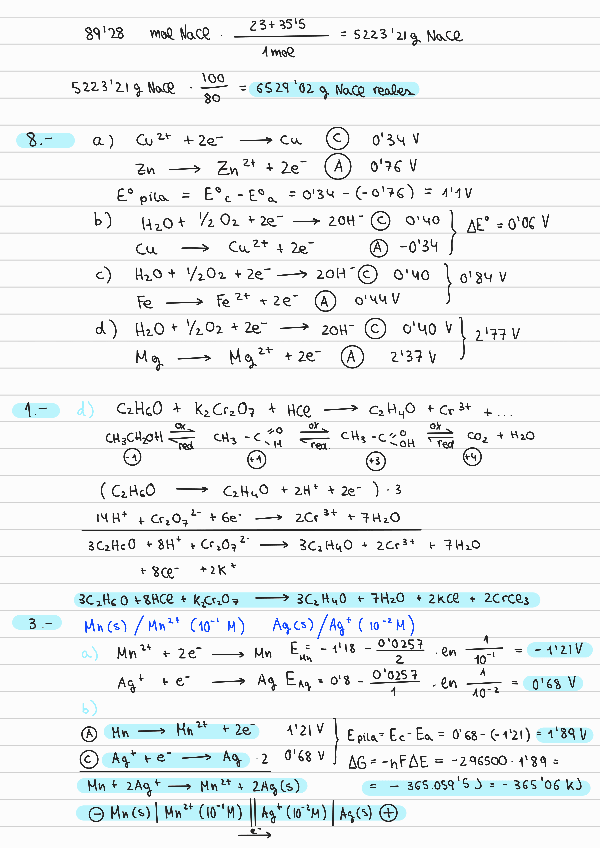 89'28 mol NaCl · (23+35'5)/(1 mol) = 5223'21 g NaCl
5223'21 g NaCl · 100/80 = 6529'02 g NaCl reales
8.- a) Cu²⁺ + 2e⁻ ⟶ Cu Ⓒ 0'34 V
Zn ⟶ Zn²⁺ + 2e⁻ Ⓐ 0'76 V
E° pila = E°c - E°a = 0'34 - (-0'76) = 1'1V
b) H2O + 1/2 O2 + 2e⁻ ⟶ 2OH⁻ Ⓒ 0'40 } ΔE° = 0'06 V
Cu ⟶ Cu²⁺ + 2e⁻ Ⓐ -0'34
c) H2O + 1/2 O2 + 2e⁻ ⟶ 2OH⁻ Ⓒ 0'40 } 0'84 V
Fe ⟶ Fe²⁺ + 2e⁻ Ⓐ 0'44 V
d) H2O + 1/2 O2 + 2e⁻ ⟶ 2OH⁻ Ⓒ 0'40 V } 2'77 V
Mg ⟶ Mg²⁺ + 2e⁻ Ⓐ 2'37 V
1.- d) C2H6O + K2Cr2O7 + HCl ⟶ C2H4O + Cr³⁺ + ...
CH3CH2OH ox ⇌ red CH3-C=O H ox ⇌ red. CH3-C=O OH ox ⇌ red CO2 + H2O
-1 +1 +3 +4
(C2H6O ⟶ C2H4O + 2H⁺ + 2e⁻) · 3
14H⁺ + Cr2O7²⁻ + 6e⁻ ⟶ 2Cr³⁺ + 7H2O
3C2H6O + 8H⁺ + Cr2O7²⁻ ⟶ 3C2H4O + 2Cr³⁺ + 7H2O
+ 8Cl⁻ + 2K⁺
3C2H6O + 8HCl + K2Cr2O7 ⟶ 3C2H4O + 7H2O + 2KCl + 2CrCl3
3.- Mn(s) / Mn²⁺ (10⁻¹ M) Ag(s) / Ag⁺ (10⁻² M)
a) Mn²⁺ + 2e⁻ ⟶ Mn E Mn = -1'18 - 0'0257/2 · ln 1/10⁻¹ = -1'21 V
Ag⁺ + e⁻ ⟶ Ag E Ag = 0'8 - 0'0257/1 · ln 1/10⁻² = 0'68 V
b)
Ⓐ Mn ⟶ Mn²⁺ + 2e⁻ 1'21 V } Epila = Ec - Ea = 0'68 - (-1'21) = 1'89 V
Ⓒ Ag⁺ + e⁻ ⟶ Ag · 2 0'68 V } ΔG = -nFΔE = -2·96500·1'89 =
Mn + 2Ag⁺ ⟶ Mn²⁺ + 2Ag(s) = - 365.059'5 J = - 365'06 kJ
⊖ Mn(s) | Mn²⁺ (10⁻¹ M) || Ag⁺ (10⁻² M) | Ag(s) ⊕
e⁻ ⟶